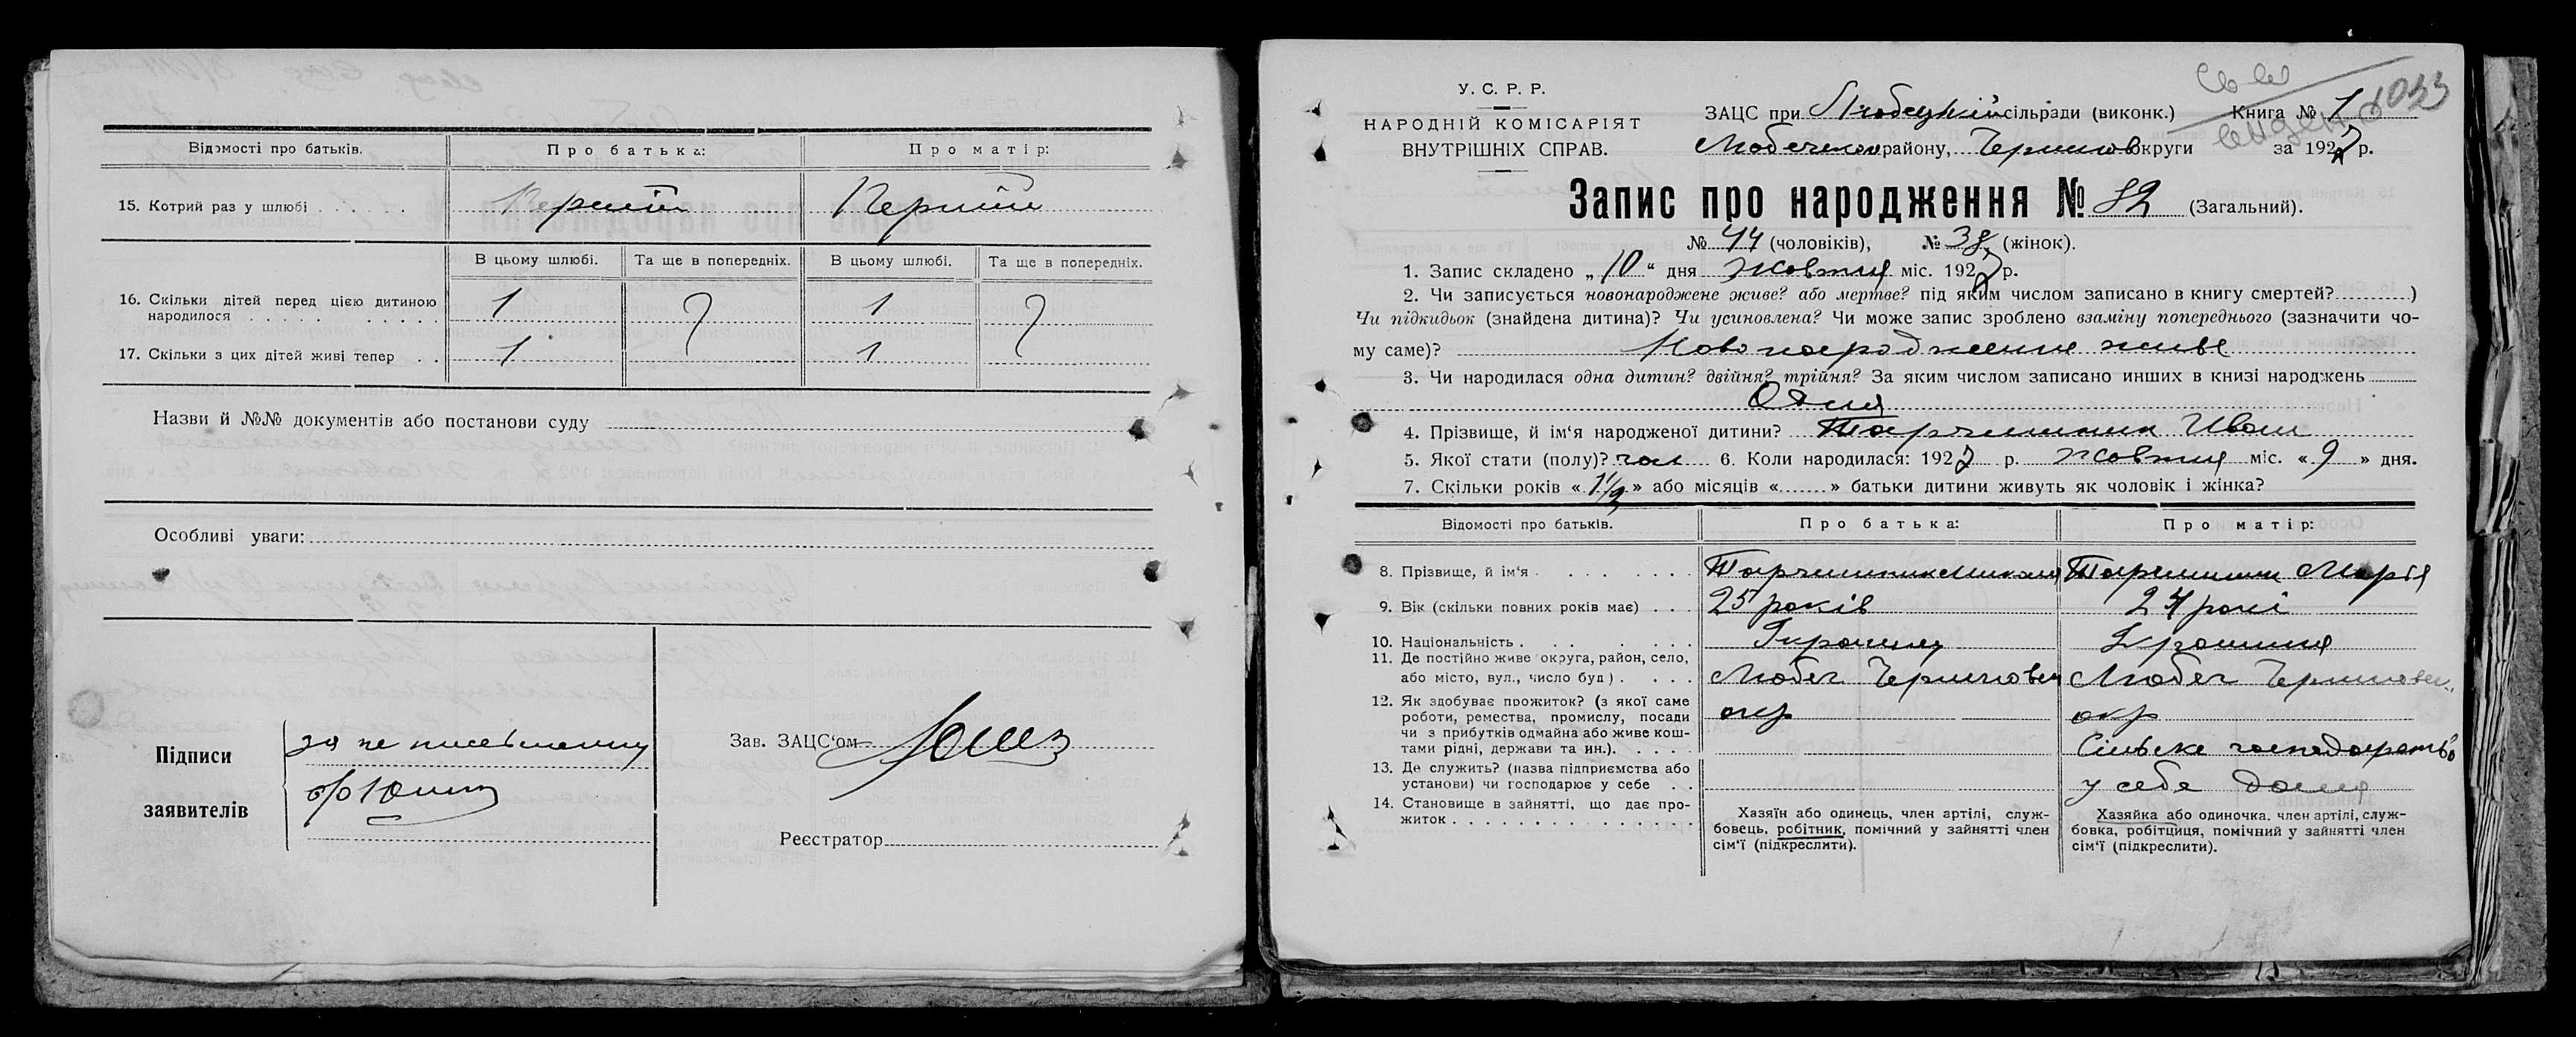 Відомості про батьків. Про батька: Про матір:
15. Котрий раз у шлюбі Перший Перший
В цьому шлюбі. Та ще в попередніх. В цьому шлюбі. Та ще в попередніх.
16. Скільки дітей перед цією дитиною народилося 1 1
17. Скільки з цих дітей живі тепер 1 1
Назви й №№ документів або постанови суду
Особливі уваги:
Підписи
заявителів
за не письменну
Зав. ЗАЦС‘ом
Реєстратор
У. С. Р. Р.
НАРОДНІЙ КОМІСАРІЯТ
ВНУТРІШНІХ СПРАВ.
ЗАЦС при Любецькій сільради (виконк.) Книга № 1
району, округи за 1927 р.
Запис про народження № 82 (Загальний).
№ 44 (чоловіків), № 38 (жінок).
1. Запис складено „10“ дня Жовтня міс. 1927 р.
2. Чи записується новонароджене живе? або мертве? під яким числом записано в книгу смертей? )
Чи підкидьок (знайдена дитина)? Чи усиновлена? Чи може запис зроблено взаміну попереднього (зазначити чо-
му саме)? Новонароджение живе
3. Чи народилася одна дитин? двійня? трійня? За яким числом записано инших в книзі народжень
Одна
4. Прізвище, й ім‘я народженої дитини? Иван
5. Якої стати (полу)? чол 6. Коли народилася: 1927 р. Жовтня міс. «9» дня.
7. Скільки років «1½» або місяців « » батьки дитини живуть як чоловік і жінка?
Відомості про батьків. Про батька: Про матір:
8. Прізвище, й ім‘я Марія
9. Вік (скільки повних років має) 25 років 24 рокі
10. Національність
11. Де постійно живе округа, район, село,
або місто, вул., число буд). Любеч Любеч
12. Як здобуває прожиток? (з якої саме
роботи, ремества, промислу, посади окр окр
чи з прибутків одмайна або живе кош-
тами рідні, держави та ин.). Сільське господарство
13. Де служить? (назва підприємства або
установи) чи господарює у себе у себе дома
14. Становище в зайнятті, що дає про-
житок
Хазяїн або одинець, член артілі, служ-
бовець, робітник, помічний у зайнятті член
сім‘ї (підкреслити).
Хазяйка або одиночка. член артілі, служ-
бовка, робітниця, помічний у зайнятті член
сім‘ї (підкреслити).